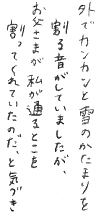 外でカンカンと雪のかたまりを
割る音がしていましたが、
お父さまが私が通るとこを
割ってくれていたのだ、と気づき